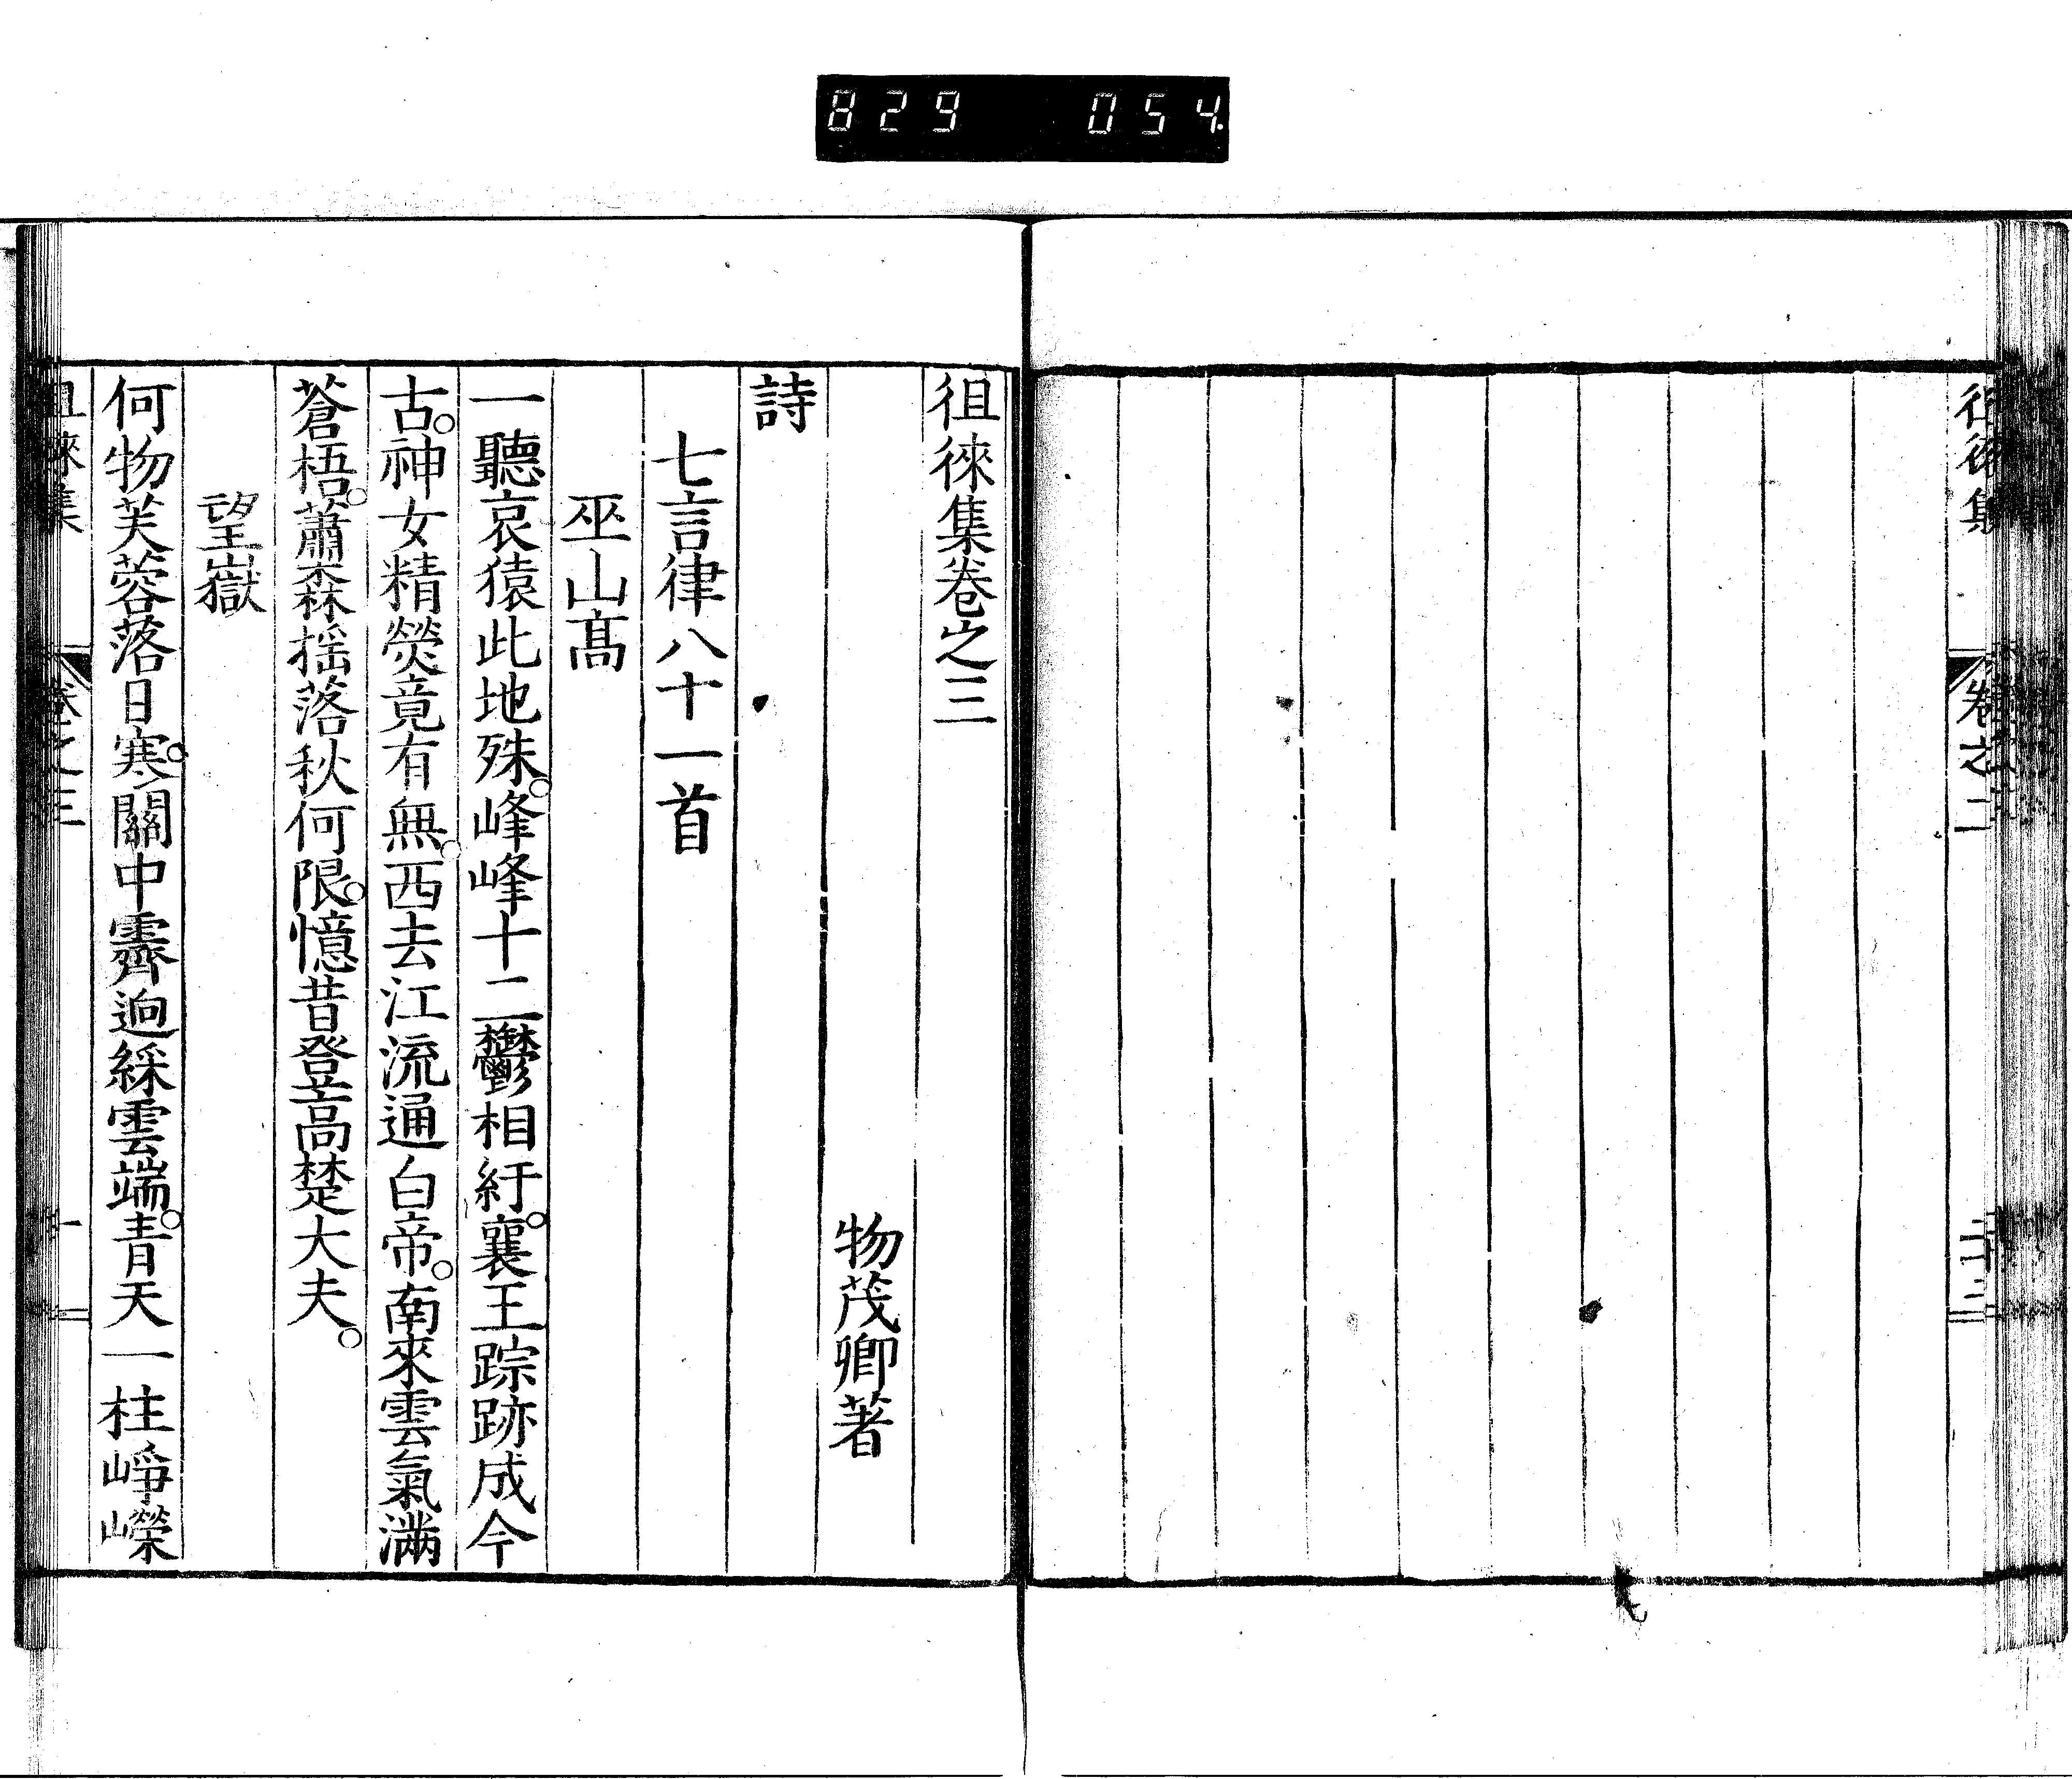 829 054.
徂徠集 卷之二 二十三
徂徠集卷之三
物茂卿著
詩
七言律八十一首
巫山髙
一聽哀猿此地殊。峰峰十二鬱相紆。襄王踪跡成今
古。神女精熒竟有無。西去江流通白帝。南來雲氣滿
蒼梧。蕭森揺落秋何限。憶昔登高楚大夫。
望嶽
何物芙蓉落日寒。關中霽逈綵雲端。青天一柱崢嶸
徂徠集 卷之三 一